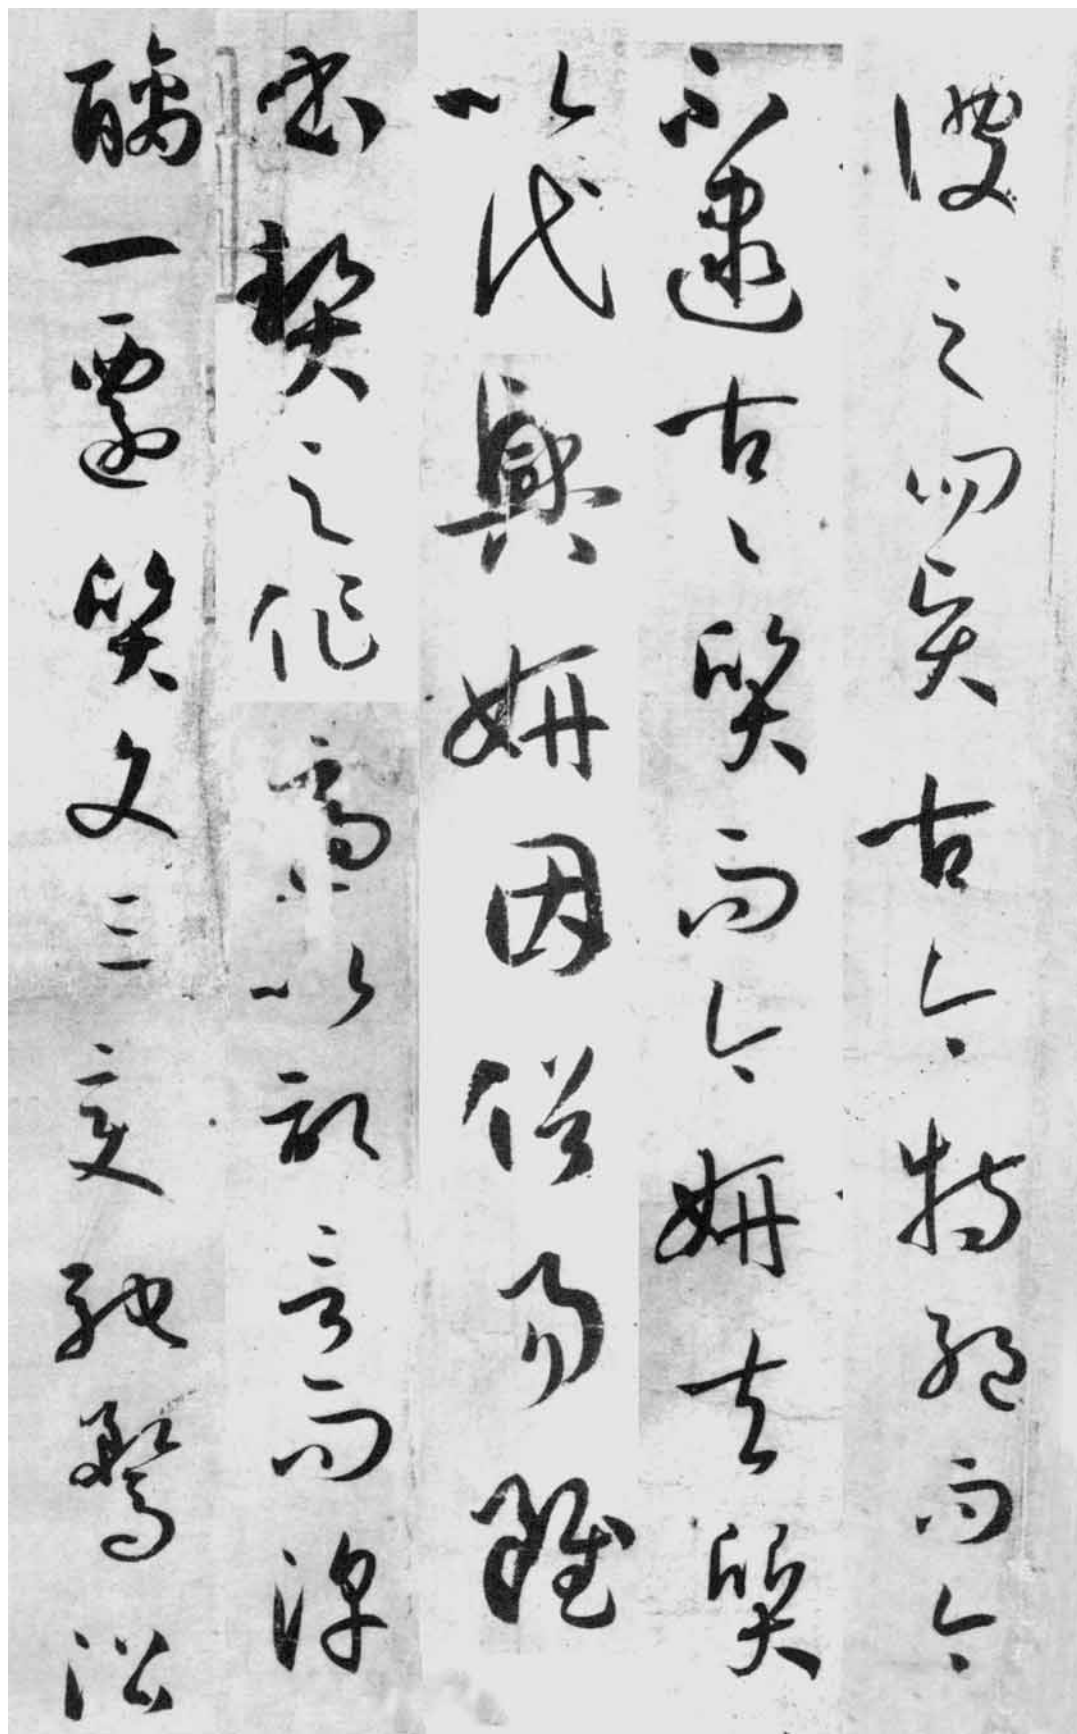 彼之四賢古今特絕而今
不逮古々質而今妍夫質
以代興妍因俗易雖
書契之作適以記言而淳
醨一遷質文三變馳鶩沿